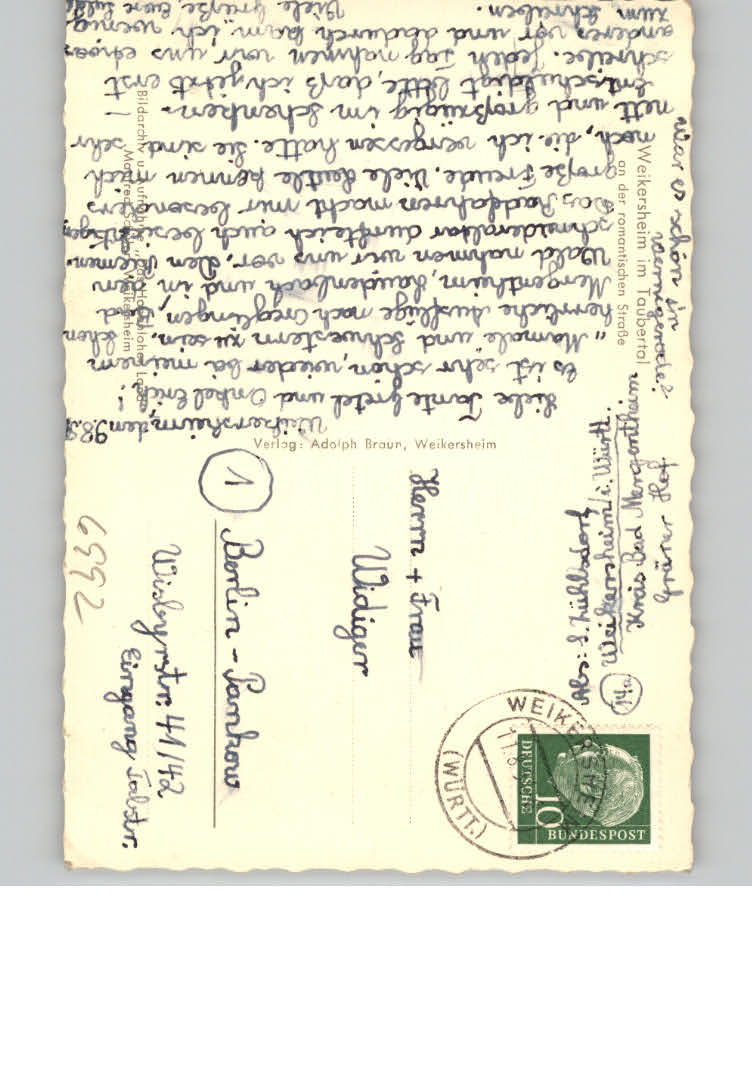 Weikersheim im Taubertal
an der romantischen Straße
Verlag: Adolph Braun, Weikersheim
Weikersheim, den 9.8.
Liebe Tante Gretel und Onkel Erich!
Es ist sehr schön, wieder bei meinem
"Mamale und Schwestern zu sein. Schon
herrliche Ausflüge nach Creglingen, Bad
Mergentheim, Laudenbach und in den
Wald nahmen wir uns vor. Den Riemen-
schneideraltar durfte ich auch besichtigen.
Das Radfahren macht mir besonders
große Freude. Viele Leutle kennen mich
noch, die ich vergessen hatte. Sie sind sehr
nett und großzügig im Schenken. -
Entschuldigt bitte, daß ich jetzt erst
schreibe. Jeden Tag nahmen wir uns etwas
anderes vor und dadurch kam ich wenig
zum Schreiben.
Viele Grüße, Eure
War es schön in
Wernigerode?
Abs: S. Zühlsdorf
(14a) Weikersheim/i. Württ.
Kreis Bad Mergentheim
Grüner Hof
Herrn + Frau
Widiger
Berlin - Pankow
1
Wisbyerstr. 41/42
Eingang Talstr.
6992
WEIKERSHEIM
(WÜRTT.)
DEUTSCHE
BUNDESPOST
10